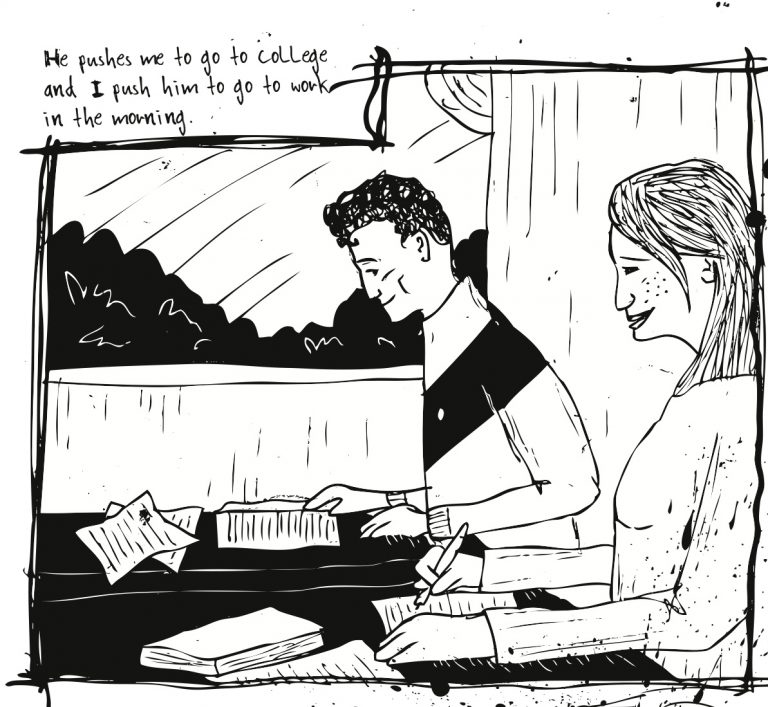 He pushes me to go to college
and I push him to go to work
in the morning.